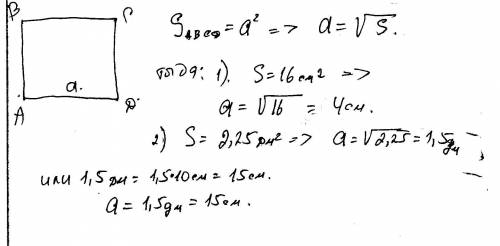 B C
a.
A D
S_ABCD = a² => a = √S.
тогда: 1). S = 16 см² =>
a = √16 = 4 см.
2) S = 2,25 дм² => a = √2,25 = 1,5 дм
или 1,5 дм = 1,5*10 см = 15 см.
a = 1,5 дм = 15 см.